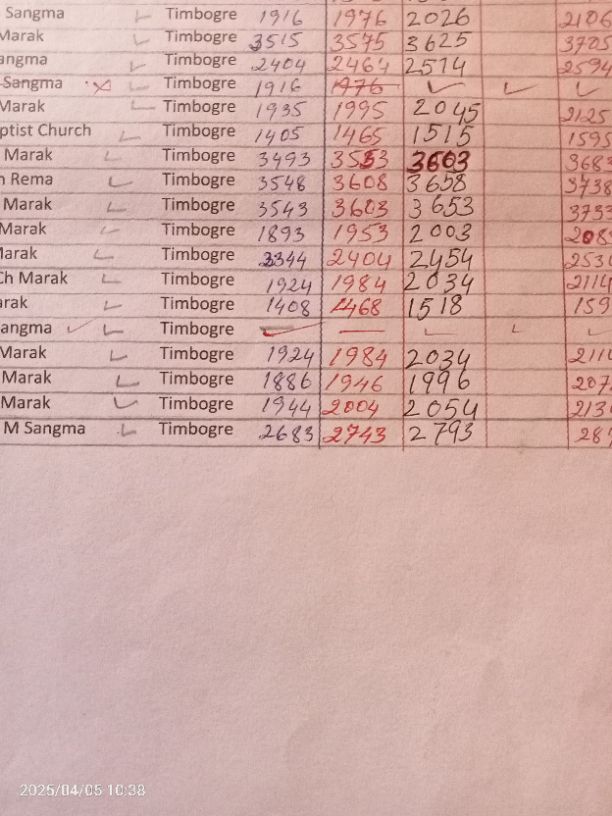 Sangma Timbogre 1916 1976 2026 2106
Marak Timbogre 3515 3575 3625 3705
angma Timbogre 2404 2464 2514 2594
Sangma × Timbogre 1916 1976 ✓ ✓ ✓
Marak Timbogre 1935 1995 2045 2125
ptist Church Timbogre 1405 1465 1515 1595
Marak Timbogre 3493 3553 3603 3683
n Rema Timbogre 3548 3608 3658 3738
Marak Timbogre 3543 3603 3653 3733
Marak Timbogre 1893 1953 2003 208
Marak Timbogre 2344 2404 2454 253
Ch Marak Timbogre 1924 1984 2034 2114
arak Timbogre 1408 1468 1518 159
angma ✓ Timbogre
Marak Timbogre 1924 1984 2034 211
Marak Timbogre 1886 1946 1996 207
Marak Timbogre 1944 2004 2054 213
M Sangma Timbogre 2683 2743 2793 28
2025/04/05 10:38